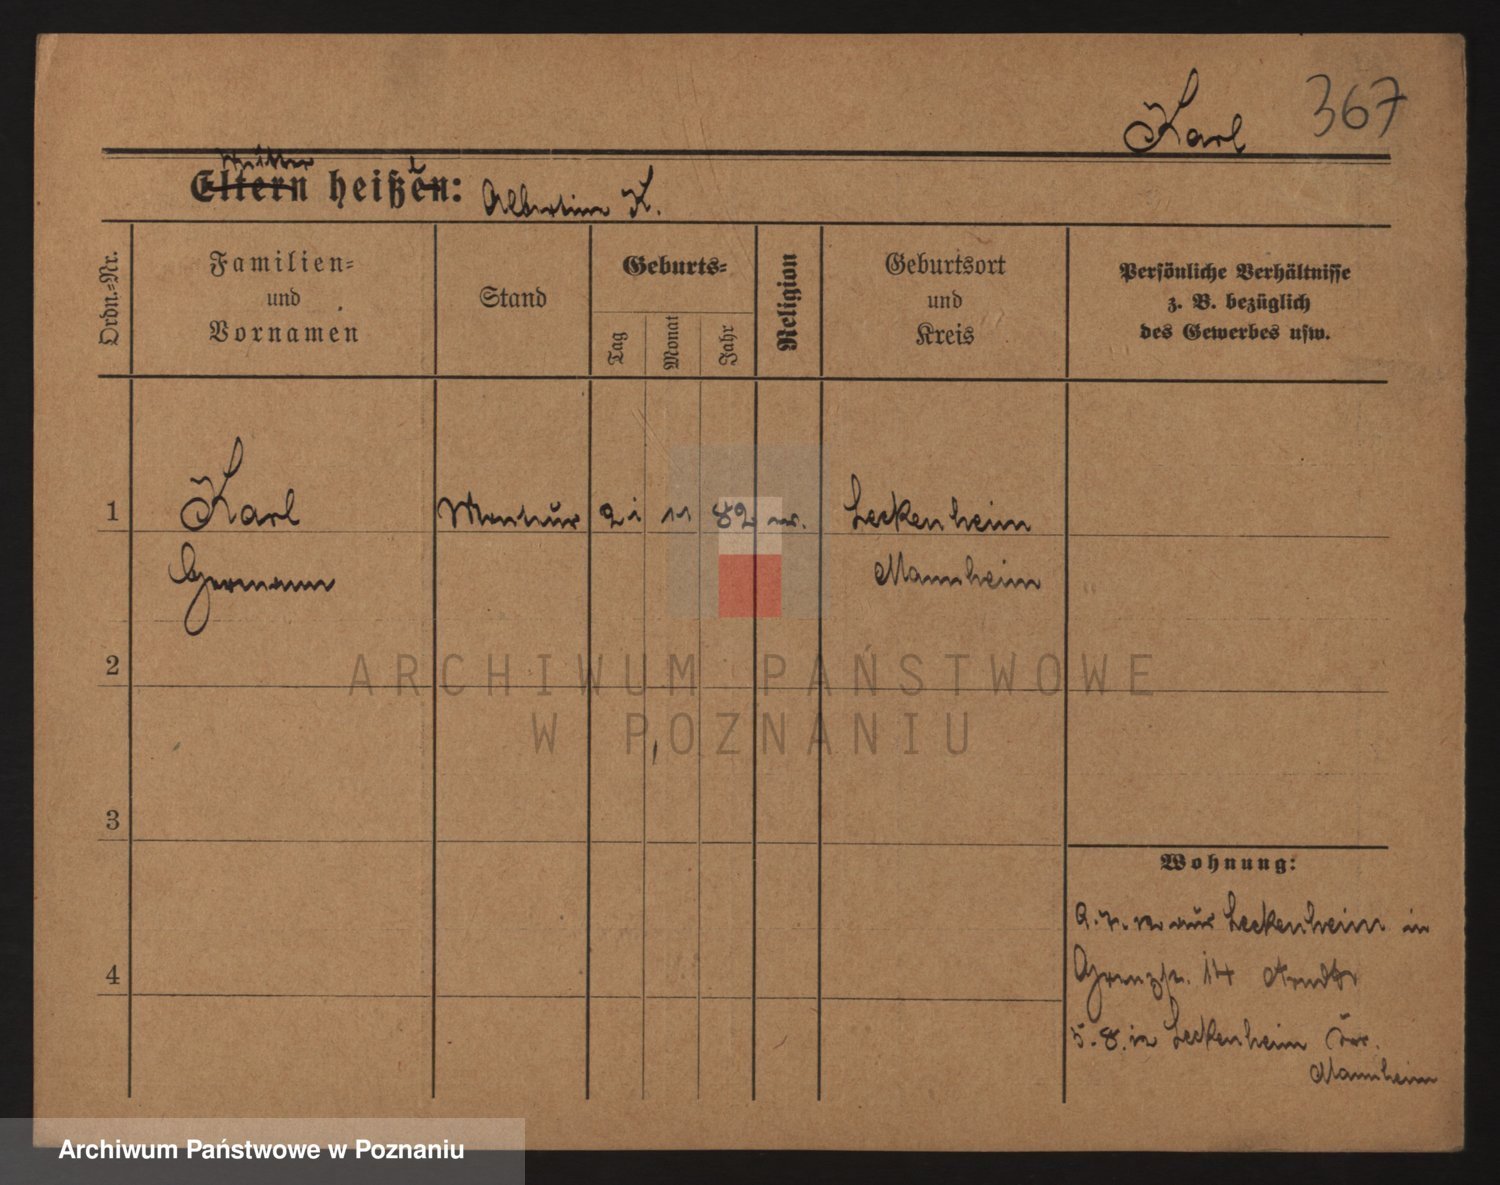 Karl 367
Mutter
Eltern heißen: Albertine K.
Ordn.-Nr.
Familien-
und
Vornamen
Stand
Geburts-
Tag
Monat
Jahr
Religion
Geburtsort
und
Kreis
Persönliche Verhältnisse
z. B. bezüglich
des Gewerbes usw.
1 Karl Monteur 21 11 82 ev. Seckenheim
Hermann Mannheim
2
3
4
Wohnung:
aus Seckenheim in
Grenzstr. 14 Arndt
5. 8. in Seckenheim
Mannheim
ARCHIWUM PAŃSTWOWE
W POZNANIU
Archiwum Państwowe w Poznaniu